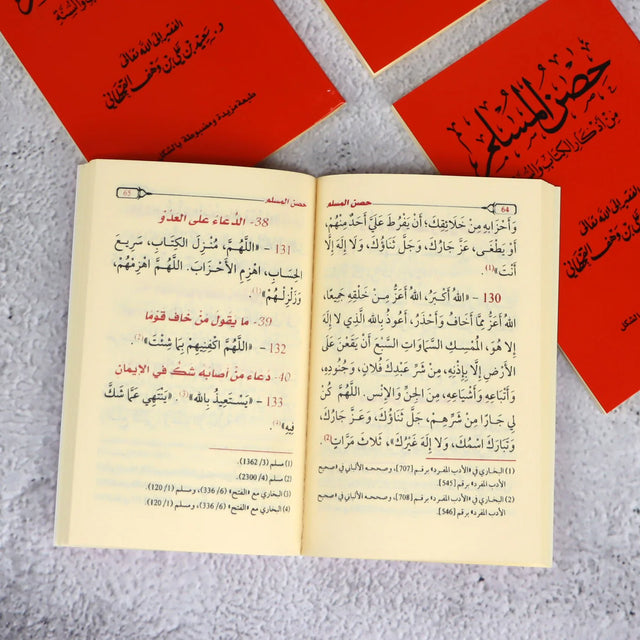 الفقير إلى الله تعالى
د. سعيد بن علي بن وهف القحطاني
طبعة مزيدة ومضبوطة بالشكل
حصن المسلم
من أذكار الكتاب والسنة
الفقير إلى الله تعالى
بن علي بن وهف القحطاني
64
حصن المسلم
وَأَحْزَابِهِ مِنْ خَلَائِقِكَ؛ أَنْ يَفْرُطَ عَلَيَّ أَحَدٌ مِنْهُمْ،
أَوْ يَطْغَى، عَزَّ جَارُكَ، وَجَلَّ ثَنَاؤُكَ، وَلَا إِلَهَ إِلَّا
أَنْتَ»(1).
130 – «اللهُ أَكْبَرُ، اللهُ أَعَزُّ مِنْ خَلْقِهِ جَمِيعًا،
اللهُ أَعَزُّ مِمَّا أَخَافُ وَأَحْذَرُ، أَعُوذُ بِاللهِ الَّذِي لَا إِلَهَ
إِلَّا هُوَ، الْمُمْسِكِ السَّمَاوَاتِ السَّبْعِ أَنْ يَقَعْنَ عَلَى
الْأَرْضِ إِلَّا بِإِذْنِهِ، مِنْ شَرِّ عَبْدِكَ فُلَانٍ، وَجُنُودِهِ،
وَأَتْبَاعِهِ وَأَشْيَاعِهِ، مِنَ الْجِنِّ وَالْإِنْسِ. اللَّهُمَّ كُنْ
لِي جَارًا مِنْ شَرِّهِمْ، جَلَّ ثَنَاؤُكَ، وَعَزَّ جَارُكَ،
وَتَبَارَكَ اسْمُكَ، وَلَا إِلَهَ غَيْرُكَ»، ثَلَاثَ مَرَّاتٍ(2).
(1) البخاري في «الأدب المفرد» برقم [707]، وصححه الألباني في «صحيح
الأدب المفرد» برقم [545].
(2) البخاري في «الأدب المفرد» برقم [708]، وصححه الألباني في «صحيح
الأدب المفرد» برقم [546].
حصن المسلم
65
38- الدُّعَاءُ عَلَى الْعَدُوِّ
131 – «اللَّهُمَّ، مُنْزِلَ الْكِتَابِ، سَرِيعَ
الْحِسَابِ، اهْزِمِ الْأَحْزَابَ. اللَّهُمَّ اهْزِمْهُمْ،
وَزَلْزِلْهُمْ»(1).
39- مَا يَقُولُ مَنْ خَافَ قَوْمًا
132 – «اللَّهُمَّ اكْفِنِيهِمْ بِمَا شِئْتَ»(2).
40- دُعَاءُ مَنْ أَصَابَهُ شَكٌّ فِي الْإِيمَانِ
133 – «يَسْتَعِيذُ بِاللهِ»(3). «يَنْتَهِي عَمَّا شَكَّ
فِيهِ»(4).
(1) مسلم (3/ 1362).
(2) مسلم (4/ 2300).
(3) البخاري مع «الفتح» (6/ 336)، ومسلم (1/ 120).
(4) البخاري مع «الفتح» (6/ 336)، ومسلم (1/ 120).